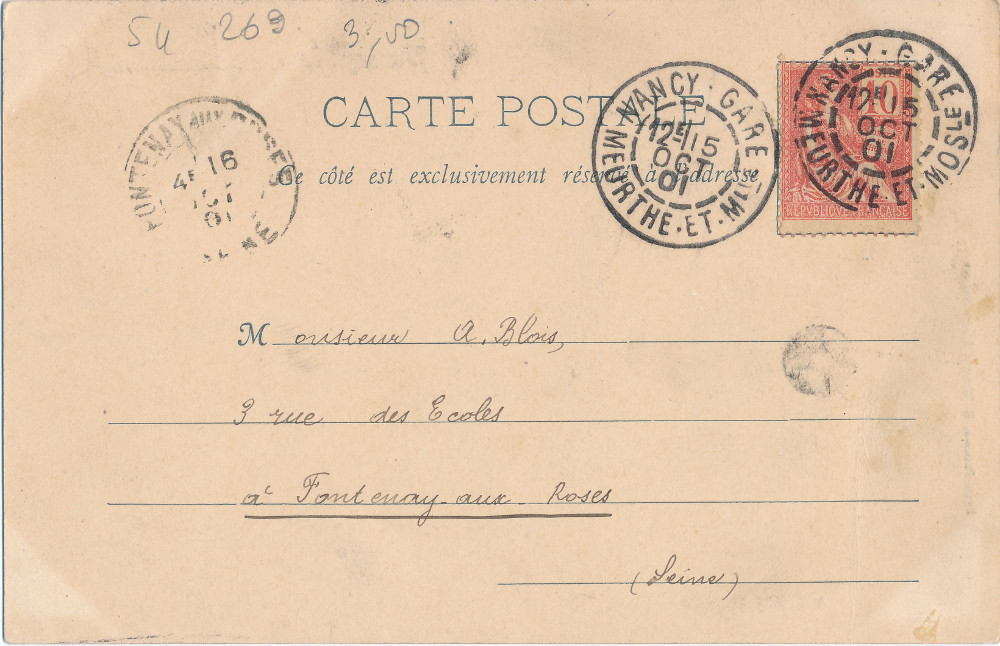 54 269 3,00
CARTE POSTALE
Ce côté est exclusivement réservé à l'adresse
NANCY · GARE
12E 15
OCT
01
MEURTHE · ET · MLLE
NANCY · GARE
12E 15
OCT
01
MEURTHE · ET · MOSLE
10
REPVBLIQVE FRANÇAISE
FONTENAY AUX ROSES
4E 16
OCT
01
Monsieur A. Blois,
3 rue des Ecoles
à Fontenay-aux Roses
(Seine)